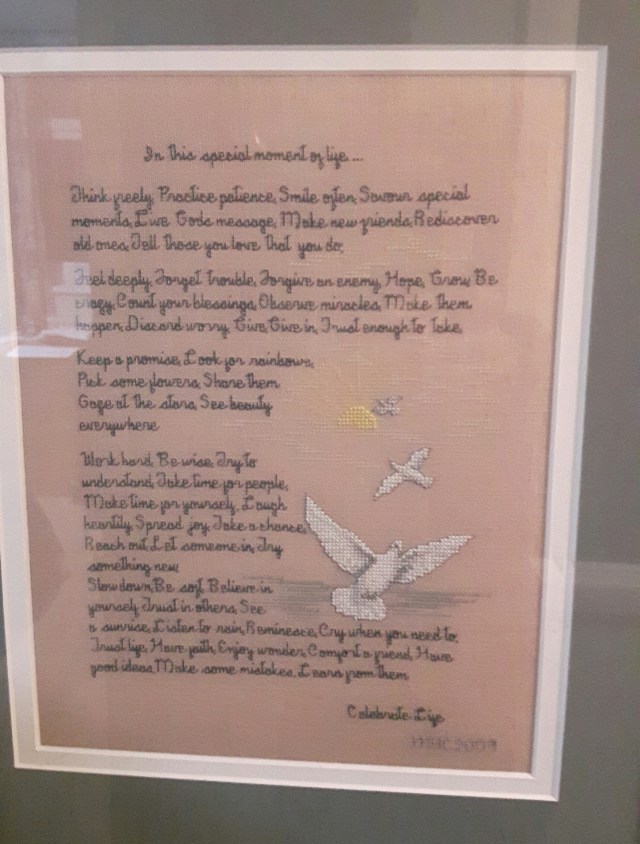 In this special moment of life...
Think freely, Practice patience, Smile often, Savour special
moments, Live Gods message, Make new friends, Rediscover
old ones, Tell those you love that you do,
Feel deeply, Forget trouble, Forgive an enemy, Hope, Grow, Be
crazy, Count your blessings, Observe miracles, Make them
happen, Discard worry, Give, Give in, Trust enough to take,
Keep a promise, Look for rainbows,
Pick some flowers, Share them
Gaze at the stars, See beauty
everywhere
Work hard, Be wise, Try to
understand, Take time for people,
Make time for yourself, Laugh
heartily, Spread joy, Take a chance,
Reach out, Let someone in, Try
something new
Slow down, Be soft, Believe in
yourself, Trust in others, See
a sunrise, Listen to rain, Reminesce, Cry when you need to,
Trust life, Have faith, Enjoy wonder, Comfort a friend, Have
good ideas, Make some mistakes, Learn from them
Celebrate Life
2009